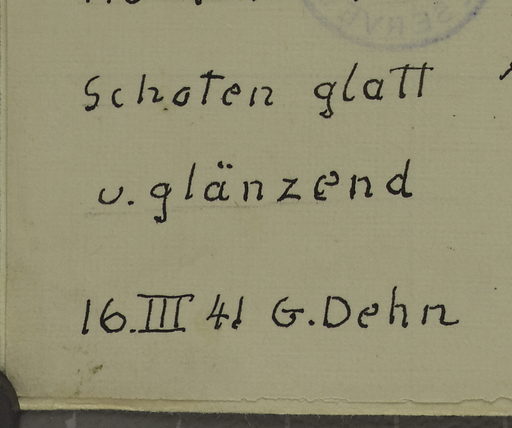 Schoten glatt
u. glänzend
16.III 41 G. Dehn